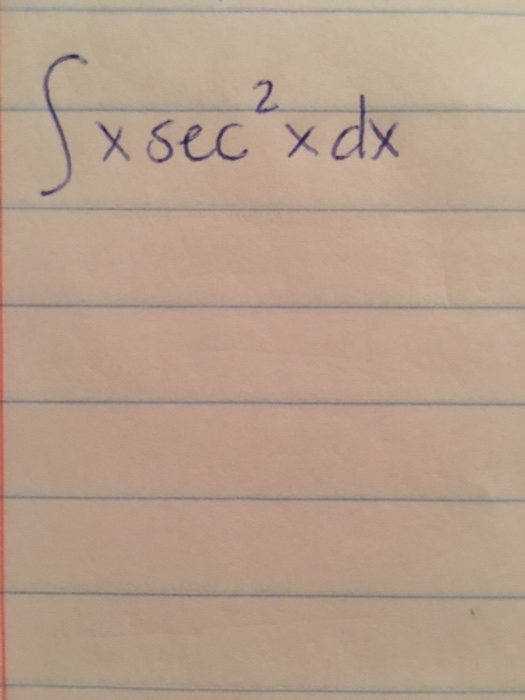 ∫x sec²x dx